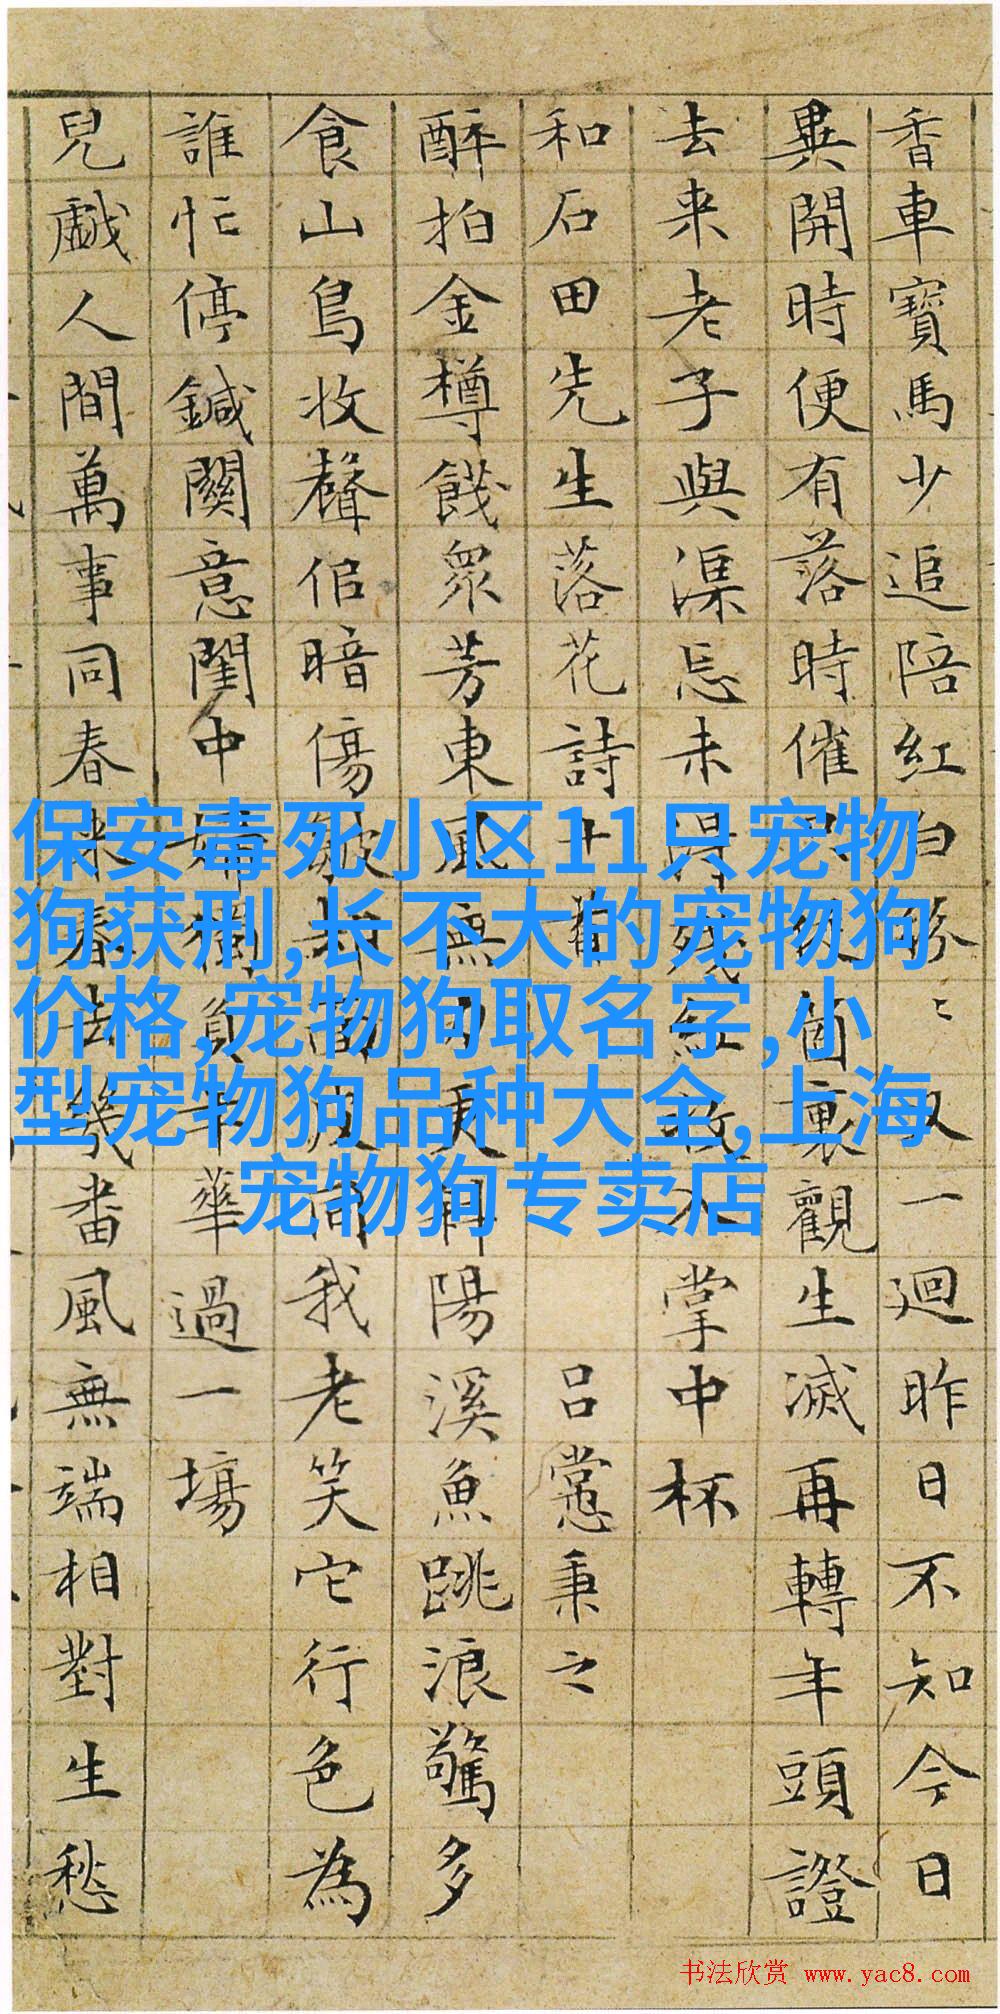 香車寶馬少追陪紅白紛〻又一迴昨日不知今日
異開時便有落時催箇裏觀生滅再轉年頭證
去来老子與渠忘未得殘紅放掌中杯
和石田先生落花詩十 呂秉之
醉拍金樽餞眾芳東風無力更斜陽溪魚跳浪驚多
食山鳥收聲信暗傷面皮向我老笑它行色為
誰忙停鍼關意閨中婦獨負年華過一場
兒戲人間萬事同春来春去幾番風無端相對生愁
保安毒死小区11只宠物
狗获刑,长不大的宠物狗
价格,宠物狗取名字,小
型宠物狗品种大全,上海
宠物狗专卖店
书法欣赏 www.yac8.com